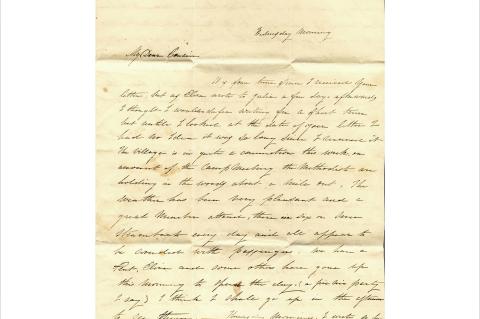 Wednesday Morning
My Dear Cousin
It is some time since I received your
letter, but as Eliza wrote to a few days afterwards
I thought I would defer writing for a short time
but until I looked at the date of your letter I
had no Idea it was so long since I received it
The village is in quite a commotion this week on
account of the Camp Meeting the Methodist are
holding in the woods about a mile out. The
weather has been very pleasant and a
great Number attend, there is day or
Steamboats every day and all appear to
be crowded with passengers. We have a
Tent, Eliza and some others have gone up
this Morning to spend the day, (a pic nic party
I say) I think I shall go up in the afternoon
to see them — Thursday Morning, I